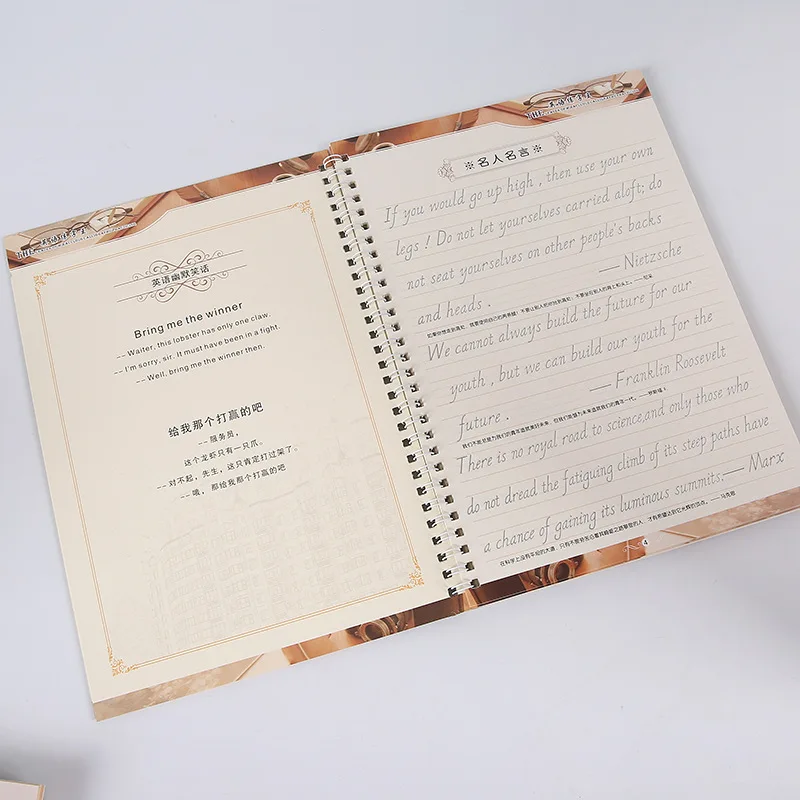 英语幽默笑话
Bring me the winner
-- Waiter, this lobster has only one claw.
-- I'm sorry, sir. It must have been in a fight.
-- Well, bring me the winner then.
给我那个打赢的吧
-- 服务员，
这个龙虾只有一只爪。
-- 对不起，先生，这只肯定打过架了。
-- 哦，那给我那个打赢的吧
※名人名言※
If you would go up high , then use your own
legs ! Do not let yourselves carried aloft; do
not seat yourselves on other people's backs
and heads .
— Nietzsche
如果你想走到高处，就要使用自己的两条腿！不要让别人把你抬到高处；不要坐在别人的背上和头上。— 尼采
We cannot always build the future for our
youth , but we can build our youth for the
future .
— Franklin Roosevelt
我们不能总是为我们的青年造就美好未来，但我们能够为未来造就我们的青年一代。— 罗斯福
There is no royal road to science,and only those who
do not dread the fatiguing climb of its steep paths have
a chance of gaining its luminous summits.— Marx
在科学上没有平坦的大道，只有不畏劳苦沿着其崎岖之路攀登的人，才有希望达到它光辉的顶点。— 马克思
4